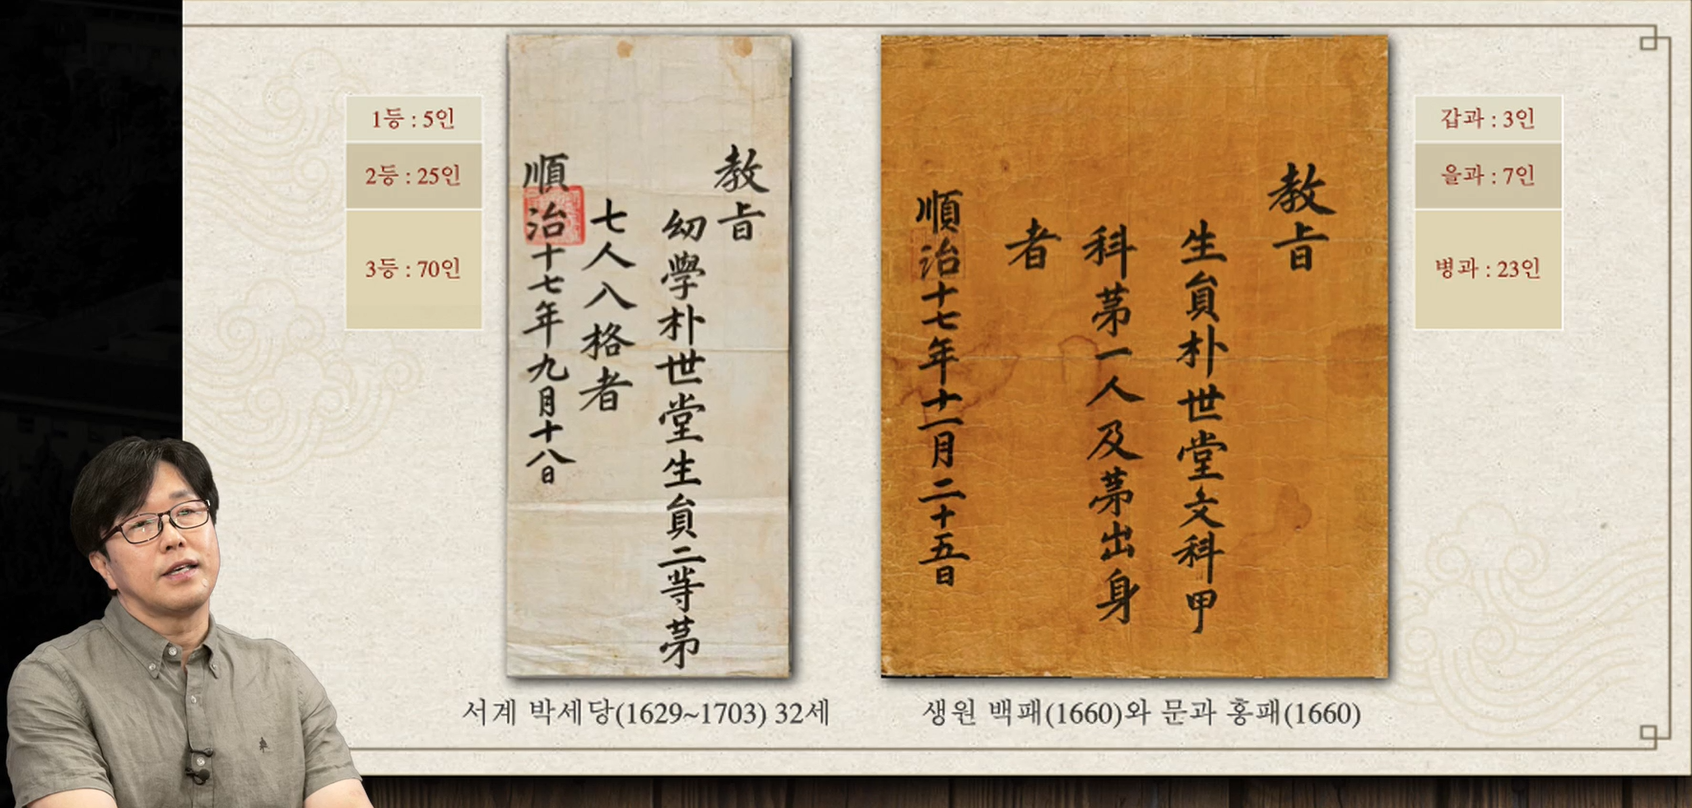 1등 : 5인
2등 : 25인
3등 : 70인
教旨
幼學朴世堂生員二等第
七人入格者
順治十七年九月十八日
教旨
生員朴世堂文科甲
科第一人及第出身
者
順治十七年十一月二十五日
갑과 : 3인
을과 : 7인
병과 : 23인
서계 박세당(1629~1703) 32세
생원 백패(1660)와 문과 홍패(1660)